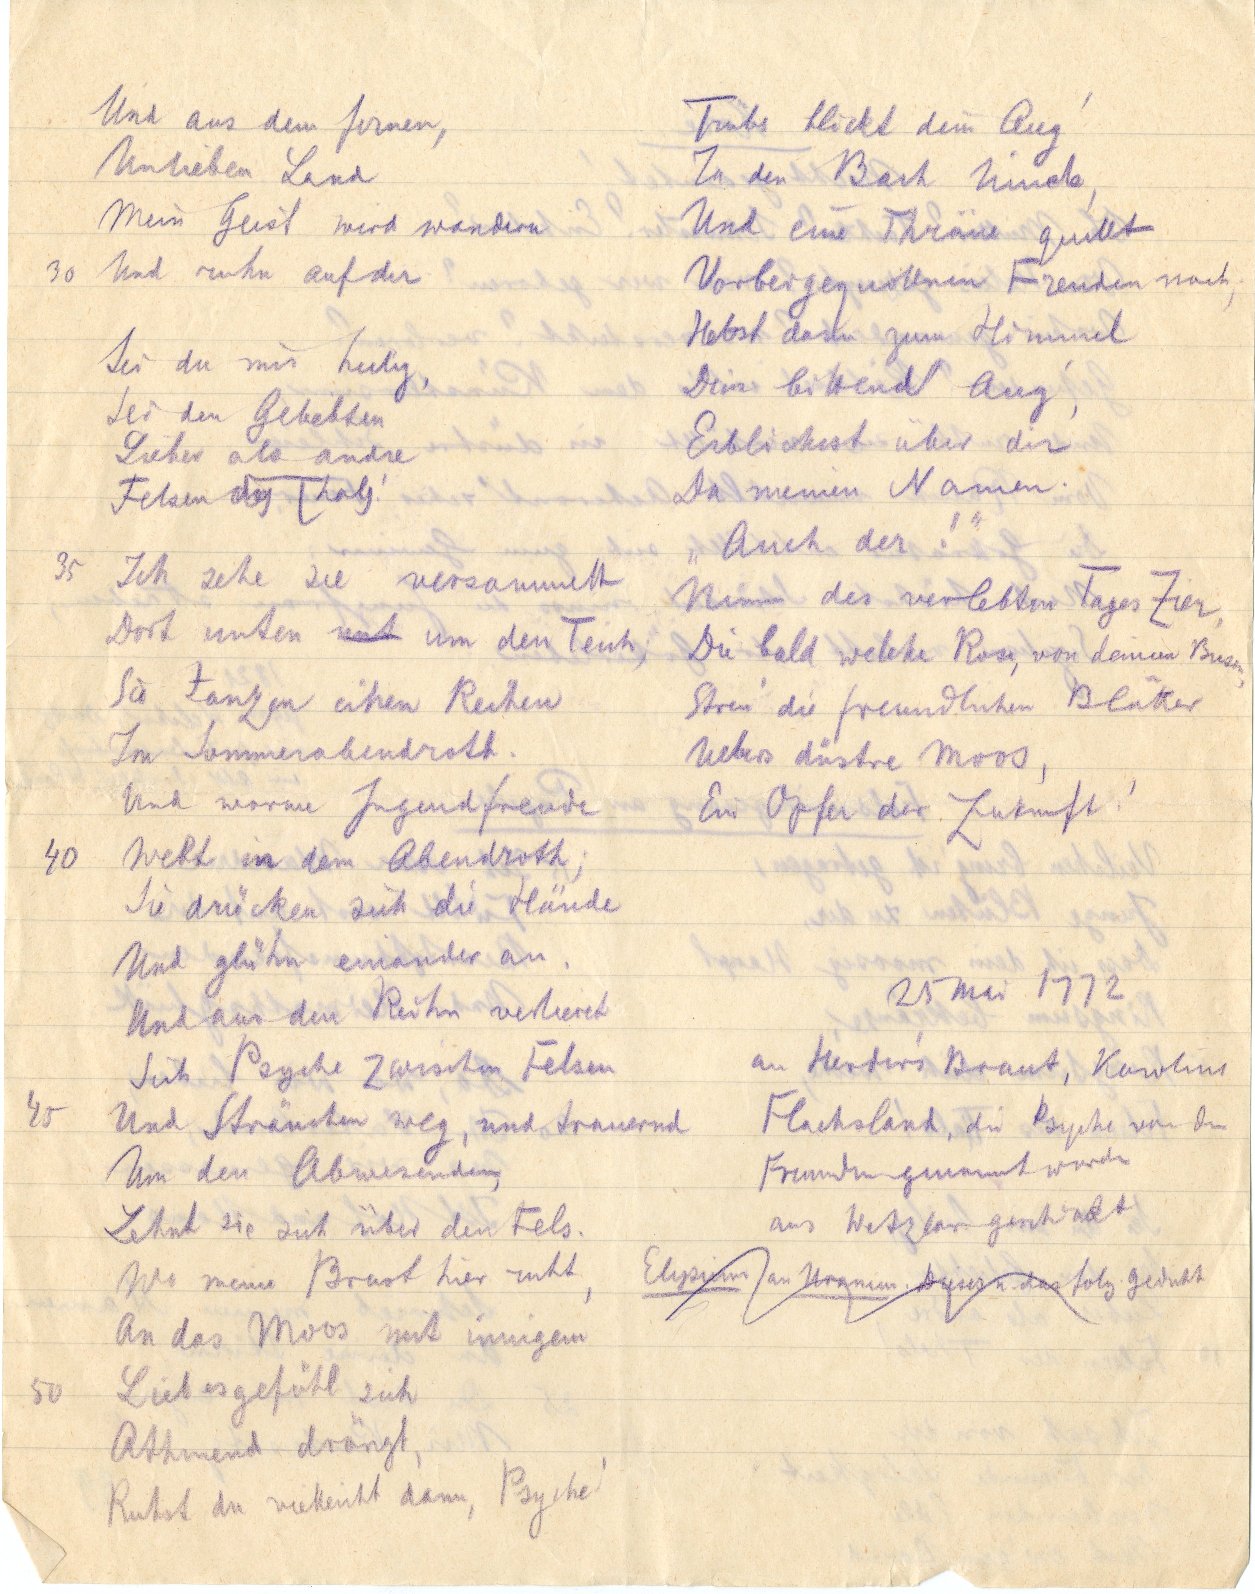 Und aus dem fernen,
Unlieben Land
Mein Geist wird wandern
30 Und ruhn auf dir
Sei du mir heilig,
Sei den Geliebten
Lieber als andre
Felsen des Thals!
35 Ich sehe sie versammelt
Dort unten um den Teich,
Sie tanzen einen Reihen
Im Sommerabendroth.
Und warme Jugendfreude
40 Webt in dem Abendroth;
Sie drücken sich die Hände
Und glühn einander an.
Und aus den Reihn verlieret
Sich Psyche zwischen Felsen
45 Und Sträuchen weg, und trauernd
Um den Abwesenden,
Lehnt sie sich über den Fels.
Wo meine Brust hier ruht,
An das Moos mit innigem
50 Liebesgefühl sich
Athmend drängt,
Ruhst du vielleicht dann, Psyche!
Trübe blickt dein Aug'
In den Bach hinab,
Und eine Thräne quillt
Vorbeigequollnen Freuden nach,
Hebst dann zum Himmel
Dein bittend Aug',
Erblickest über dir
Da meinen Namen.
„Auch der!"
Nimm des verlebten Tages Zier,
Die bald welche Rose, von deinem Busen,
Streu' die freundlichen Blätter
Uebers düstre Moos,
Ein Opfer der Zukunft!
25 Mai 1772
an Herder's Braut, Karoline
Flachsland, die Psyche von den
Freunden genannt wurde
aus Wetzlar geschickt
Elysium an Uranien. Dieses u. das folg. Gedicht